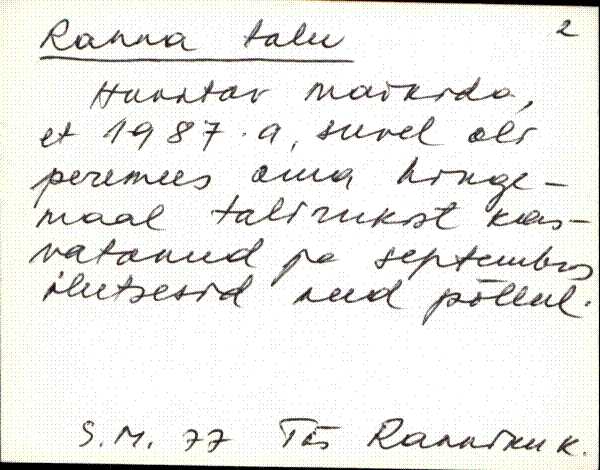 Ranna talu
2
Huvitav märkida,
et 1987.a. suvel oli
peremees oma hinge-
maal talirukist kas-
vatanud ja septembris
ilutsesid nad põllul.
S.M. 77 Tiis Rannikuk.